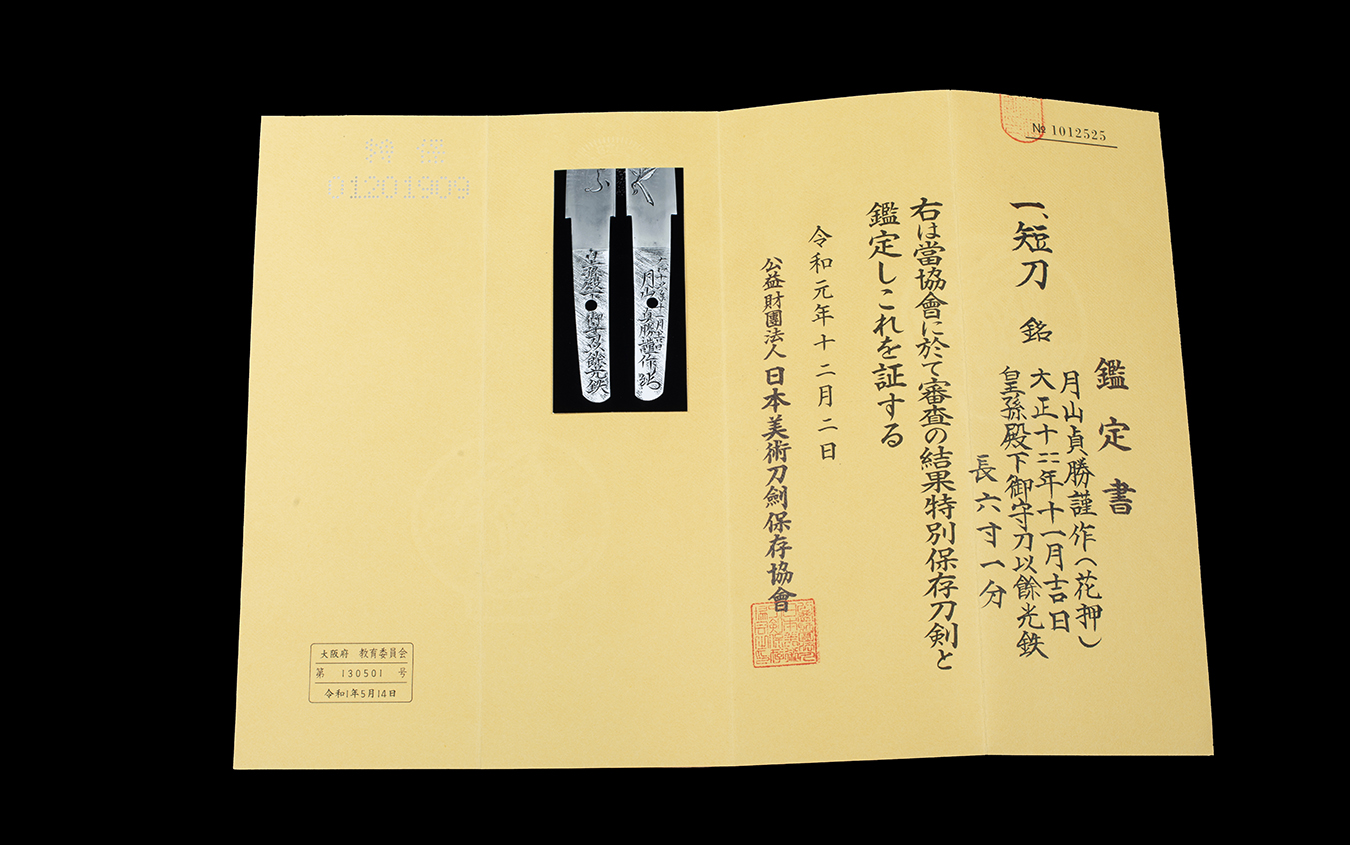 № 1012525
鑑定書
一、短刀 銘
月山貞勝謹作(花押)
大正十二年十一月吉日
皇孫殿下御守刀以餘光鉄
長六寸一分
右は當協會に於て審査の結果特別保存刀剣と
鑑定しこれを証する
令和元年十二月二日
公益財團法人日本美術刀劍保存協會
月山貞勝謹作
皇孫殿下御守刀以餘光鉄
特保
01201909
大阪府 教育委員会
第 130501 号
令和1年5月14日